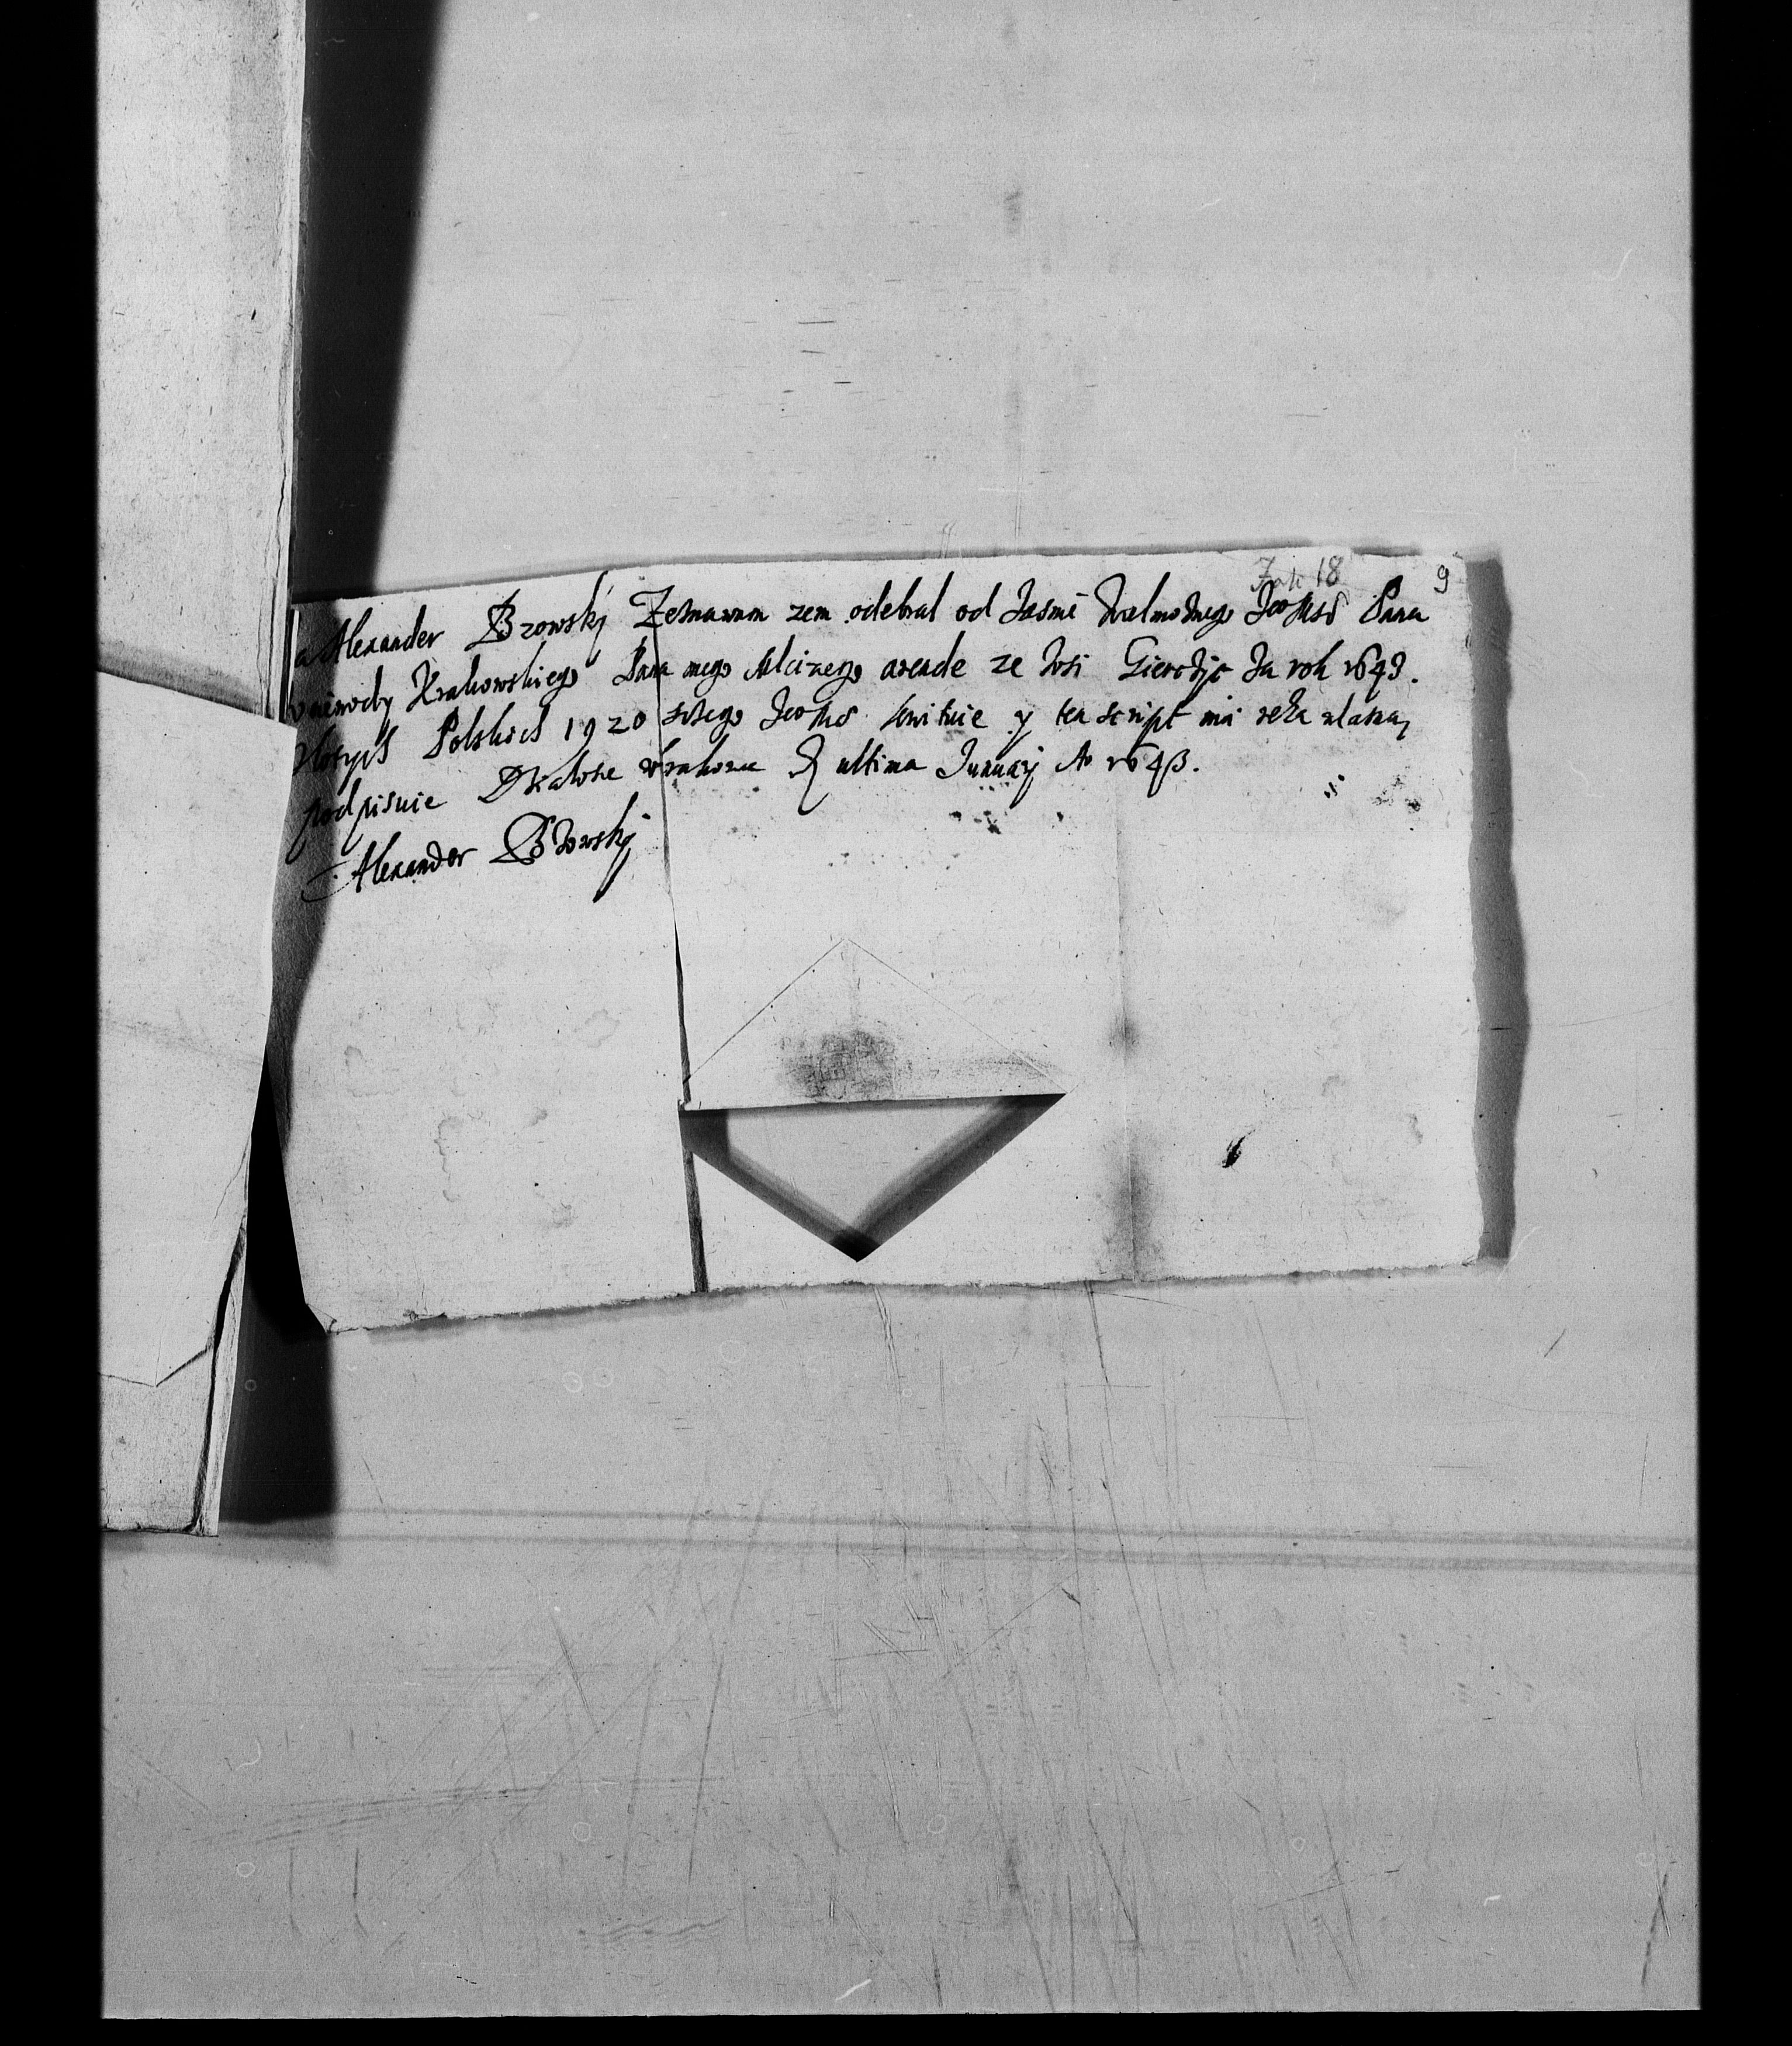 Zał: 18 9
a Alexander Brzowsky Zeznawam zem odebral od Jasnie Wielmoznego Jeo Msci Pana
woiewody Krakowskiego Pana mego Msciwego arende ze Wsi Gierczyc Za rok 1643.
zlotych Polskich 1920 Jeo Msc kwituie y ten script mą reką wlasną
podpisuie Krakowie D ultima January Ao 1643.
Alexander Brzowsky